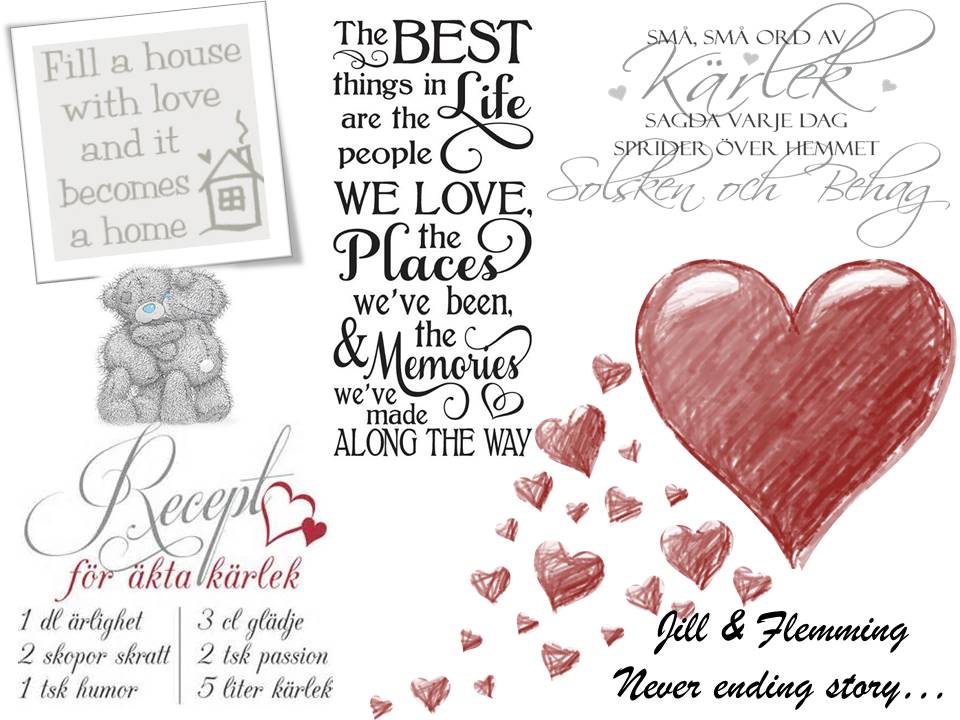 Fill a house
with love
and it
becomes
a home
The BEST
things in
Life
are the
people
WE LOVE,
the
Places
we've been,
& the
Memories
we've
made
ALONG THE WAY
SMÅ, SMÅ ORD AV
Kärlek
SAGDA VARJE DAG
SPRIDER ÖVER HEMMET
Solsken och Behag
Recept
för äkta kärlek
1 dl ärlighet
2 skopor skratt
1 tsk humor
3 cl glädje
2 tsk passion
5 liter kärlek
Jill & Flemming
Never ending story...